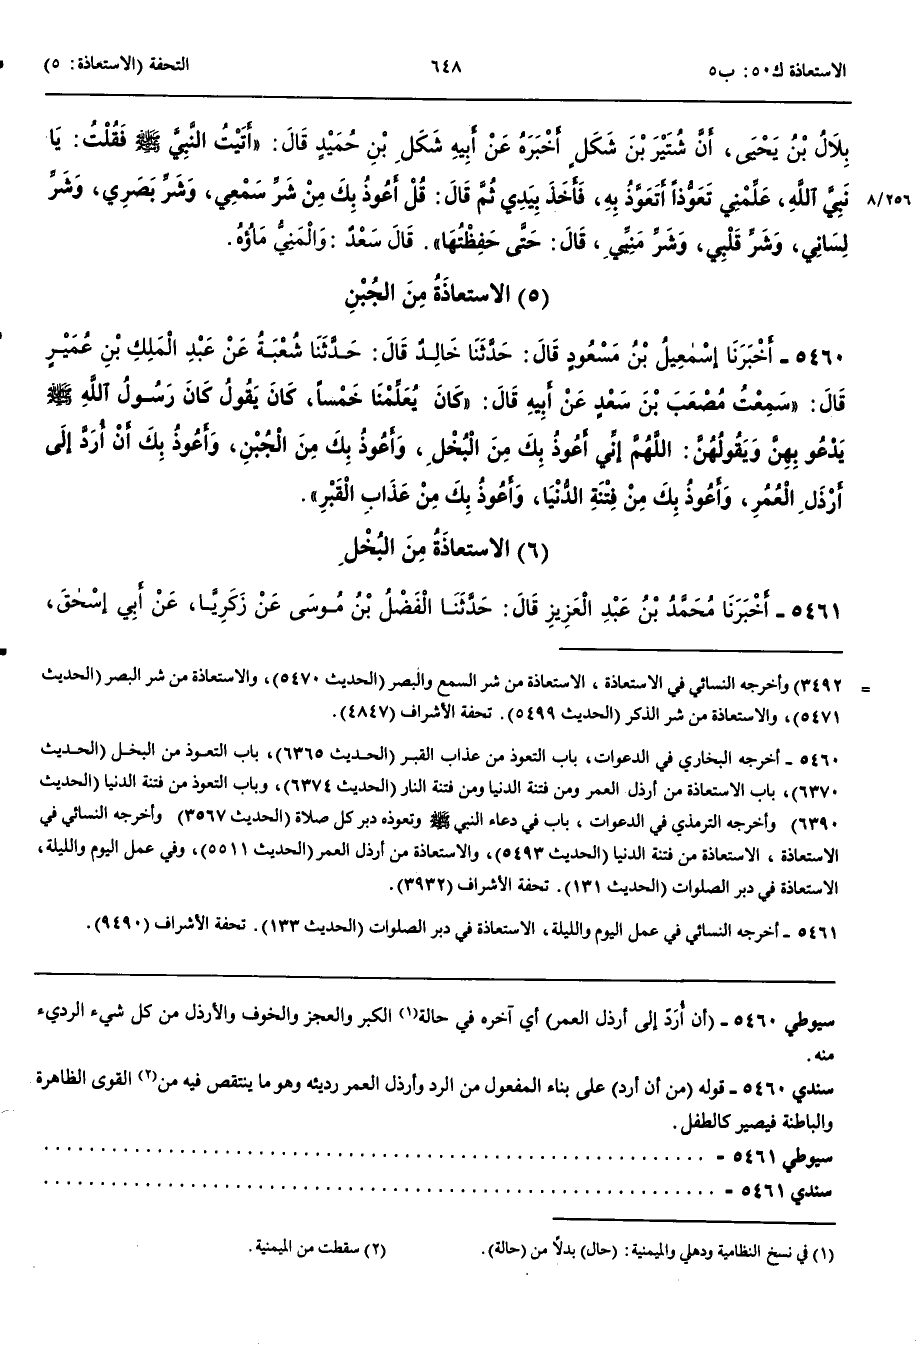 الاستعاذة ك٥٠: ب٥ ٦٤٨ التحفة (الاستعاذة: ٥)
بِلَالُ بْنُ يَحْيَى، أَنَّ شُتَيْرَ بْنَ شَكَلٍ أَخْبَرَهُ عَنْ أَبِيهِ شَكَلِ بْنِ حُمَيْدٍ قَالَ: «أَتَيْتُ النَّبِيَّ ﷺ فَقُلْتُ: يَا
نَبِيَّ ٱللَّهِ، عَلِّمْنِي تَعَوُّذاً أَتَعَوَّذُ بِهِ، فَأَخَذَ بِيَدِي ثُمَّ قَالَ: قُلْ أَعُوذُ بِكَ مِنْ شَرِّ سَمْعِي، وَشَرِّ بَصَرِي، وَشَرِّ ٨/٢٥٦
لِسَانِي، وَشَرِّ قَلْبِي، وَشَرِّ مَنِيِّي، قَالَ: حَتَّى حَفِظْتُهَا». قَالَ سَعْدٌ: وَالْمَنِيُّ مَاؤُهُ.
(٥) الاستعاذَةُ مِنَ الجُبْنِ
٥٤٦٠ ـ أَخْبَرَنَا إِسْمٰعِيلُ بْنُ مَسْعُودٍ قَالَ: حَدَّثَنَا خَالِدٌ قَالَ: حَدَّثَنَا شُعْبَةُ عَنْ عَبْدِ الْمَلِكِ بْنِ عُمَيْرٍ
قَالَ: «سَمِعْتُ مُصْعَبَ بْنَ سَعْدٍ عَنْ أَبِيهِ قَالَ: «كَانَ يُعَلِّمُنَا خَمْساً، كَانَ يَقُولُ كَانَ رَسُولُ ٱللَّهِ ﷺ
يَدْعُو بِهِنَّ وَيَقُولُهُنَّ: اللَّهُمَّ إِنِّي أَعُوذُ بِكَ مِنَ الْبُخْلِ، وَأَعُوذُ بِكَ مِنَ الْجُبْنِ، وَأَعُوذُ بِكَ أَنْ أُرَدَّ إِلَى
أَرْذَلِ الْعُمُرِ، وَأَعُوذُ بِكَ مِنْ فِتْنَةِ الدُّنْيَا، وَأَعُوذُ بِكَ مِنْ عَذَابِ الْقَبْرِ».
(٦) الاستعاذَةُ مِنَ البُخْلِ
٥٤٦١ ـ أَخْبَرَنَا مُحَمَّدُ بْنُ عَبْدِ الْعَزِيزِ قَالَ: حَدَّثَنَا الْفَضْلُ بْنُ مُوسَى عَنْ زَكَرِيَّا، عَنْ أَبِي إِسْحٰقَ،
= ٣٤٩٢) وأخرجه النسائي في الاستعاذة، الاستعاذة من شر السمع والبصر (الحديث ٥٤٧٠)، والاستعاذة من شر البصر (الحديث
٥٤٧١)، والاستعاذة من شر الذكر (الحديث ٥٤٩٩). تحفة الأشراف (٤٨٤٧).
٥٤٦٠ ـ أخرجه البخاري في الدعوات، باب التعوذ من عذاب القبر (الحديث ٦٣٦٥)، باب التعوذ من البخل (الحديث
٦٣٧٠)، باب الاستعاذة من أرذل العمر ومن فتنة الدنيا ومن فتنة النار (الحديث ٦٣٧٤)، وباب التعوذ من فتنة الدنيا (الحديث
٦٣٩٠) وأخرجه الترمذي في الدعوات، باب في دعاء النبي ﷺ وتعوذه دبر كل صلاة (الحديث ٣٥٦٧) وأخرجه النسائي في
الاستعاذة، الاستعاذة من فتنة الدنيا (الحديث ٥٤٩٣)، والاستعاذة من أرذل العمر (الحديث ٥٥١١)، وفي عمل اليوم والليلة،
الاستعاذة في دبر الصلوات (الحديث ١٣١). تحفة الأشراف (٣٩٣٢).
٥٤٦١ ـ أخرجه النسائي في عمل اليوم والليلة، الاستعاذة في دبر الصلوات (الحديث ١٣٣). تحفة الأشراف (٩٤٩٠).
سيوطي ٥٤٦٠ ـ (أن أُرَدّ إلى أرذل العمر) أي آخره في حالة(١) الكبر والعجز والخوف والأرذل من كل شيء الرديء
منه.
سندي ٥٤٦٠ ـ قوله (من أن أرد) على بناء المفعول من الرد وأرذل العمر رديئه وهو ما ينتقص فيه من(٢) القوى الظاهرة
والباطنة فيصير كالطفل.
سيوطي ٥٤٦١ ـ ................................................
سندي ٥٤٦١ ـ ................................................
(١) في نسخ النظامية ودهلي والميمنية: (حال) بدلاً من (حالة). (٢) سقطت من الميمنية.